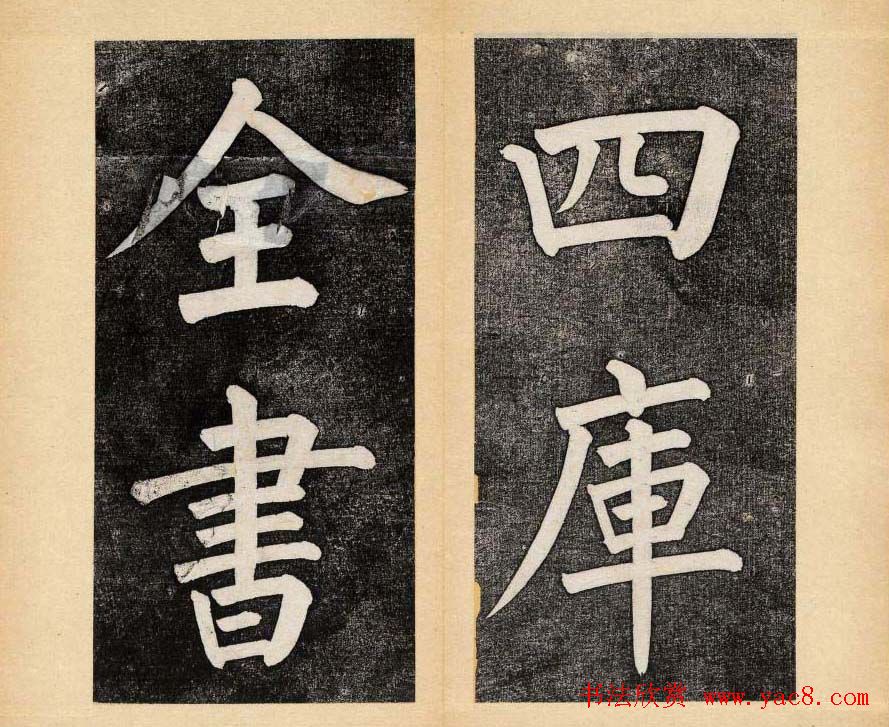 四庫
全書
书法欣赏 www.yac8.com